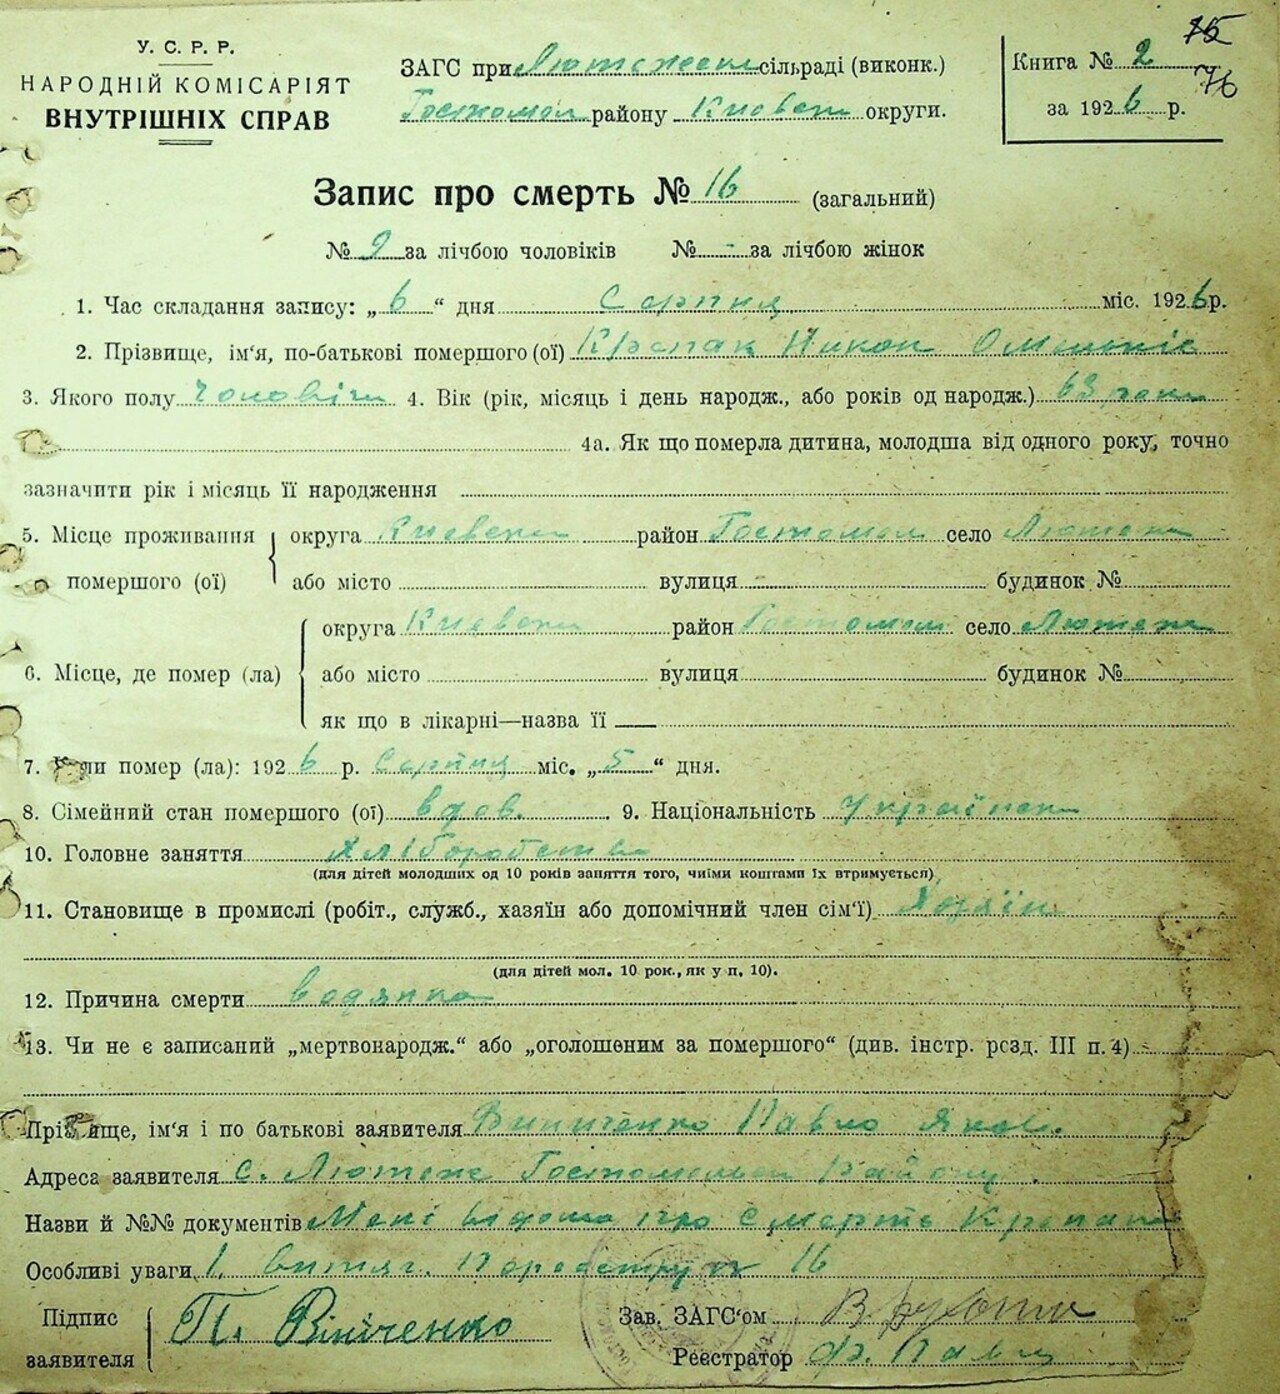 15
76
У. С. Р. Р.
НАРОДНІЙ КОМІСАРІЯТ
ВНУТРІШНІХ СПРАВ
ЗАГС при Лютежськ сільраді (виконк.)
Гостомол району Киевськ округи.
Книга № 2
за 1926 р.
Запис про смерть № 16 (загальний)
№ 9 за лічбою чоловіків № - за лічбою жінок
1. Час складання запису: „6“ дня Серпня міс. 1926 р.
2. Прізвище, ім'я, по-батькові помершого (ої) Крепак Никон
3. Якого полу Чоловічи 4. Вік (рік, місяць і день народж., або років од народж.) 63 роки
4а. Як що померла дитина, молодша від одного року, точно
зазначити рік і місяць її народження
5. Місце проживання помершого (ої) округа Киевськ район Гостомол село Лютеж
або місто вулиця будинок №
6. Місце, де помер (ла) округа Киевськ район Гостомол село Лютеж
або місто вулиця будинок №
як що в лікарні—назва її —
7. Коли помер (ла): 1926 р. Серпня міс. „5“ дня.
8. Сімейний стан помершого (ої) вдов. 9. Національність Українец
10. Головне заняття Хліборобство
(для дітей молодших од 10 років заняття того, чиїми коштами їх втримується)
11. Становище в промислі (робіт., служб., хазяїн або допомічний член сім'ї) Хозяїн
(для дітей мол. 10 рок., як у п. 10).
12. Причина смерти водянка
13. Чи не є записаний „мертвонародж.“ або „оголошеним за помершого“ (див. інстр. розд. III п. 4)
Прізвище, ім'я і по батькові заявителя Виниченко Павло Яков.
Адреса заявителя С. Лютеж Гостомольск Району.
Назви й №№ документів Мені відомо про смерть Крепака
Особливі уваги 1. витяг. По реєстру № 16
Підпис заявителя П. Вініченко
Зав. ЗАГС'ом
Реєстратор